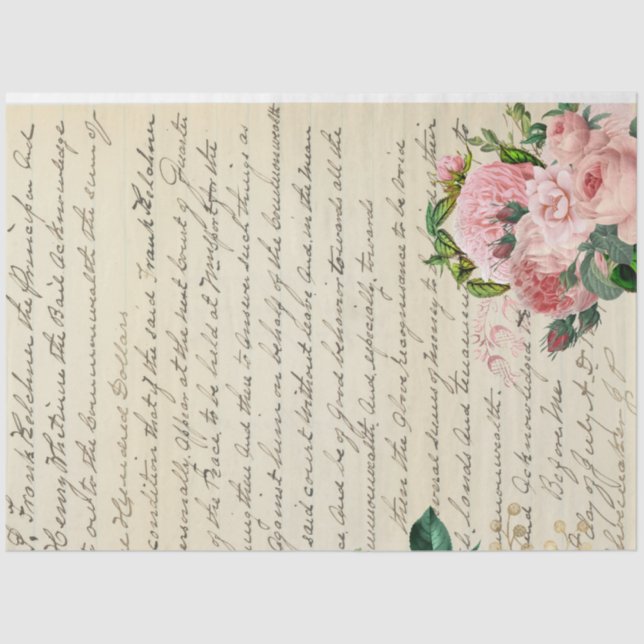 I, Frank Kelchner the Principal and
Henry Whitenire the Bail Acknowledge
t out to the Commonwealth the sum of
e Hundred Dollars
condition that if the said Frank Kelchner
ersonally appear at the next Court of Quarter
of the Peace, to be held at Mifflport for the
and there to answer such things as
against him on behalf of the Commonwealth
said court without leave And in the mean
ce, And be of Good behavior towards all the
mmonwealth And, especially, towards
then the above recognizance to be void
veral sums of money to be
lands and tenements to
mmonwealth.
and Acknowledged
Before Me
day of July A.D
J.P.